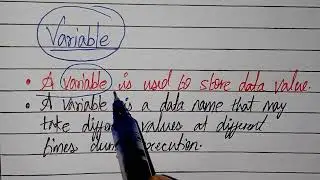 Variable
• A variable is used to store data value.
• A variable is a data name that may
take different values at different
times execution.